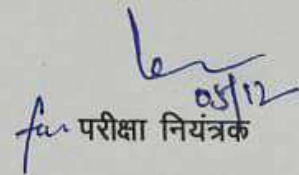 05/12
for परीक्षा नियंत्रक